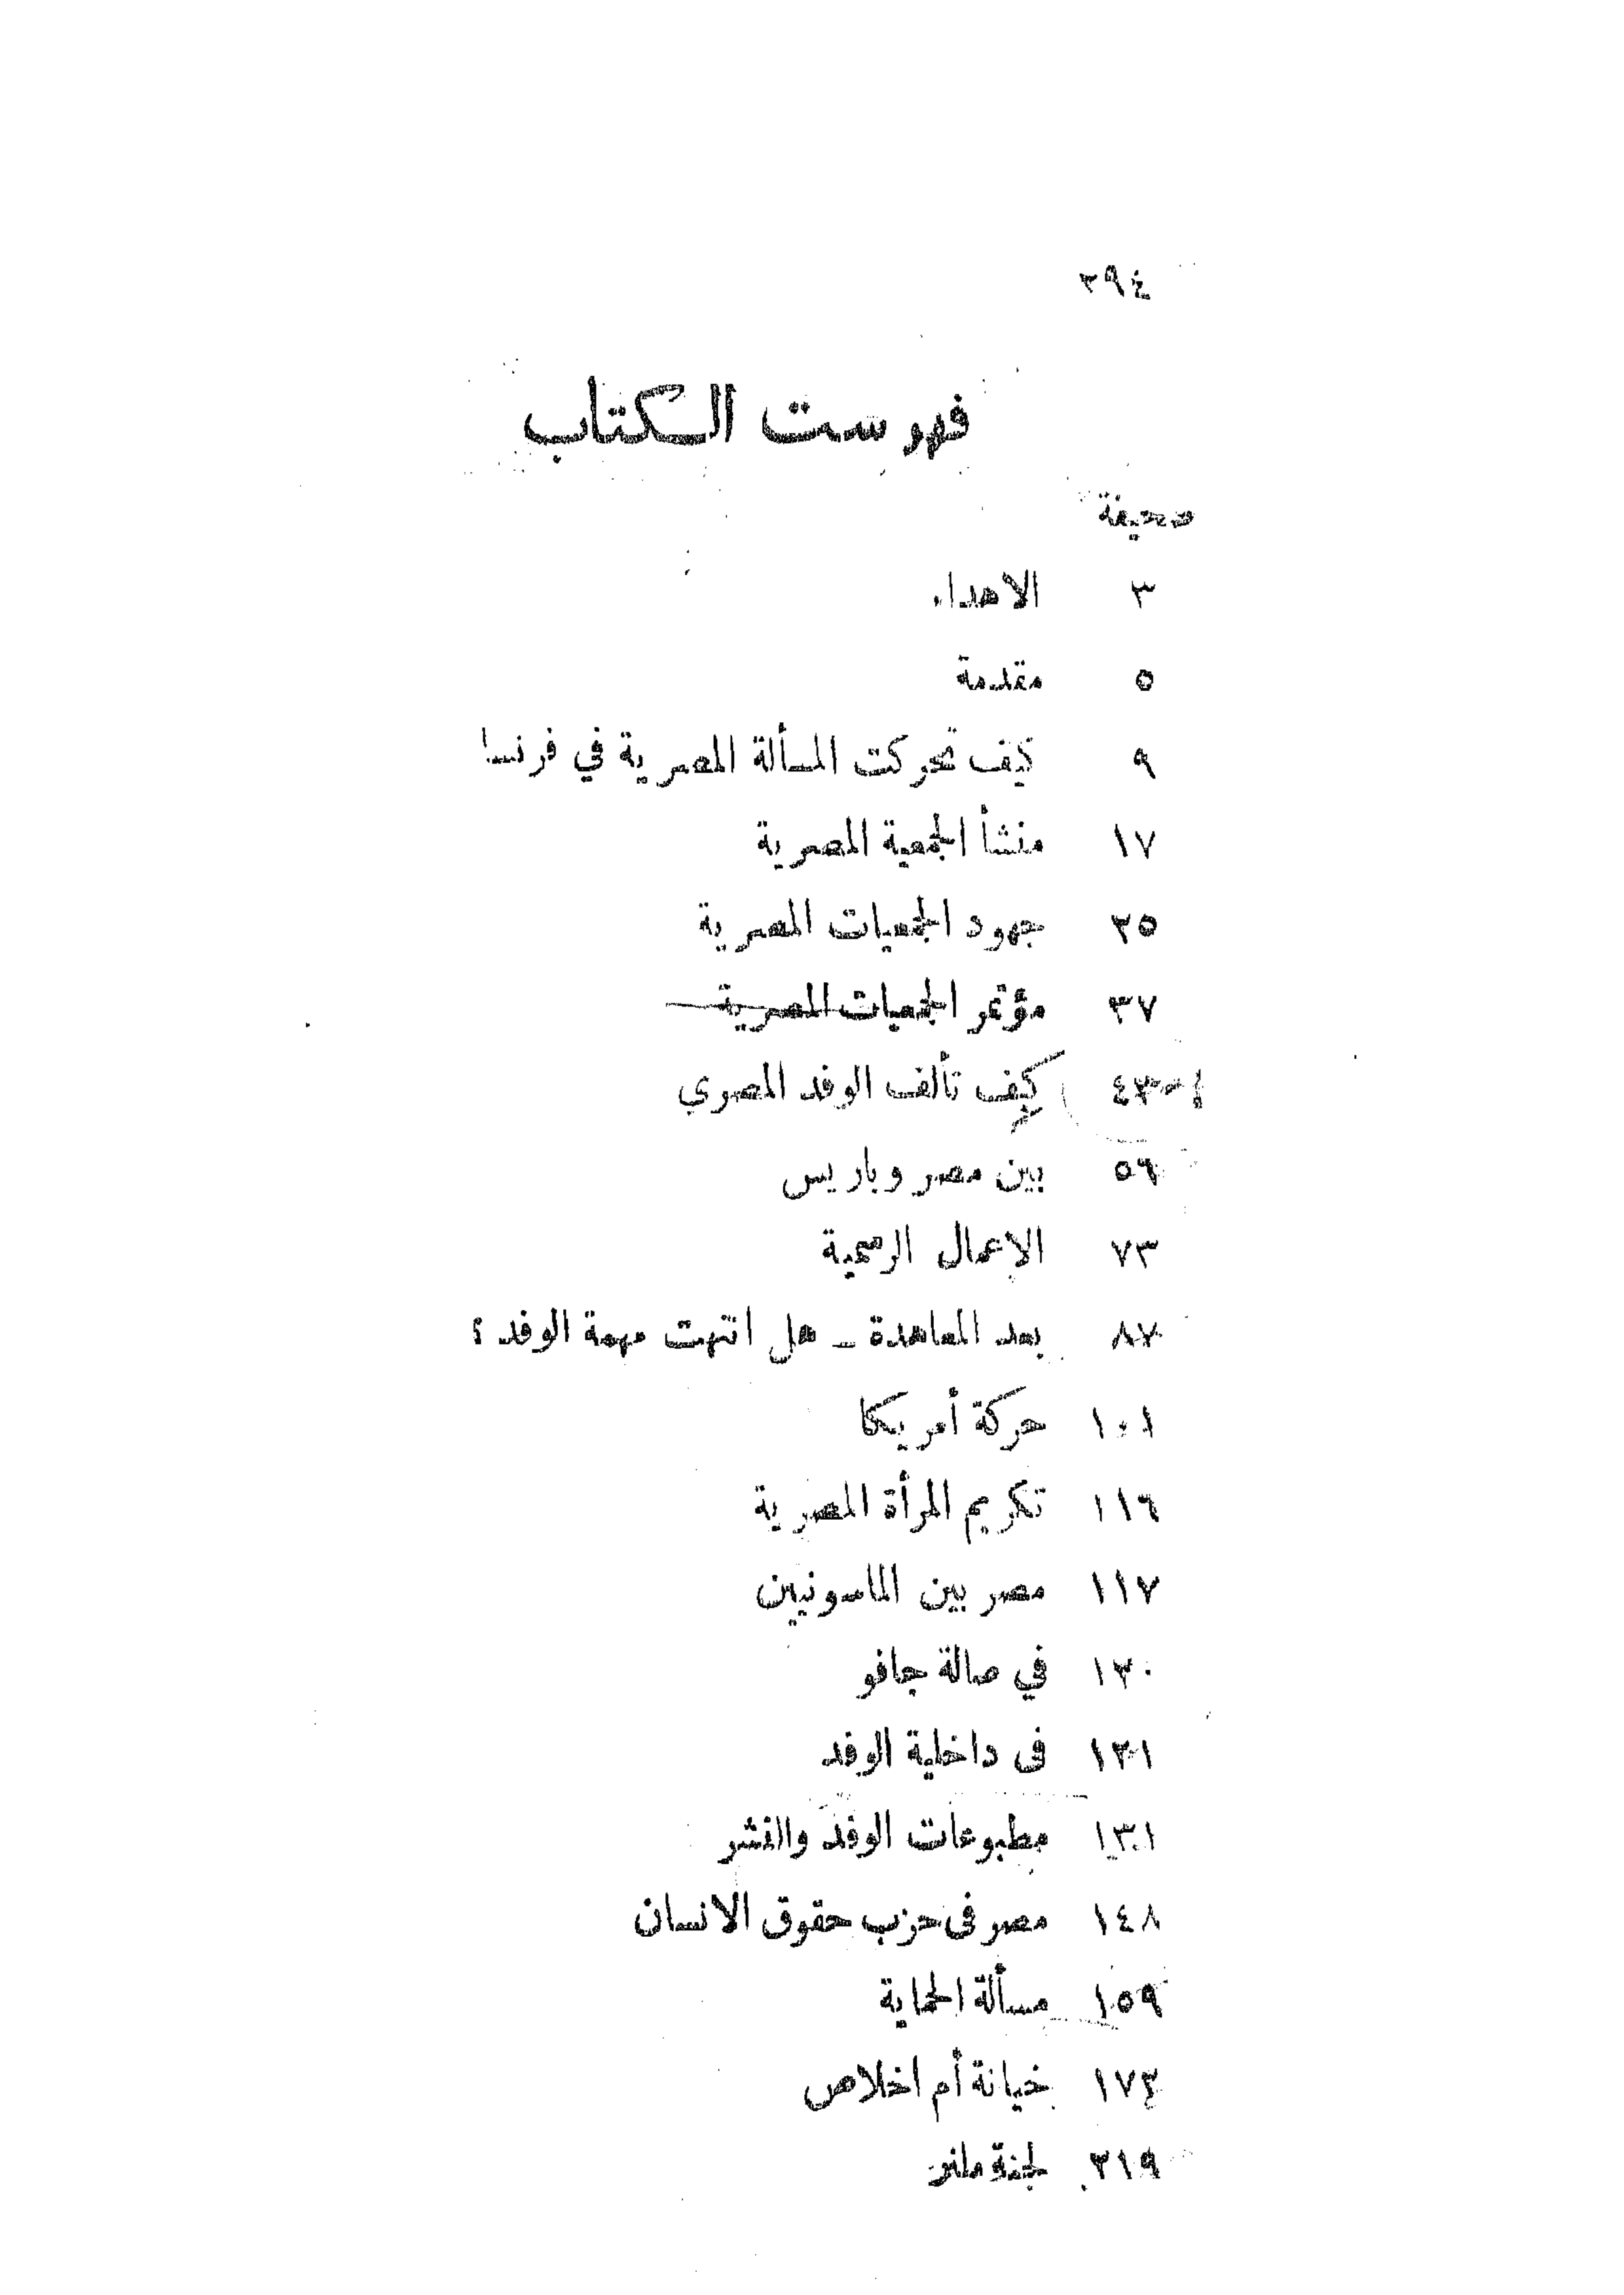 ٢٩٤
فهرست الكتاب
صحيفة
٣ الاهداء
٥ مقدمة
٩ كيف تحركت المسألة المصرية في فرنسا
١٧ منشأ الجمعية المصرية
٢٥ جهود الجمعيات المصرية
٣٧ مؤتمر الجمعيات المصرية
٤٣ كيف تألف الوفد المصري
٥٦ بين مصر وباريس
٧٣ الاعمال الرسمية
٨٧ بعد المعاهدة ـ هل انتهت مهمة الوفد ؟
١٠١ حركة أمريكا
١١٦ تكريم المرأة المصرية
١١٧ مصر بين الماسونيين
١٢٠ في صالة جافو
١٢١ فى داخلية الوفد
١٣١ مطبوعات الوفد والنشر
١٤٨ مصر فى حزب حقوق الانسان
١٥٩ مسألة الحماية
١٧٣ خيانة أم اخلاص
٢١٩ لجنة ملنر